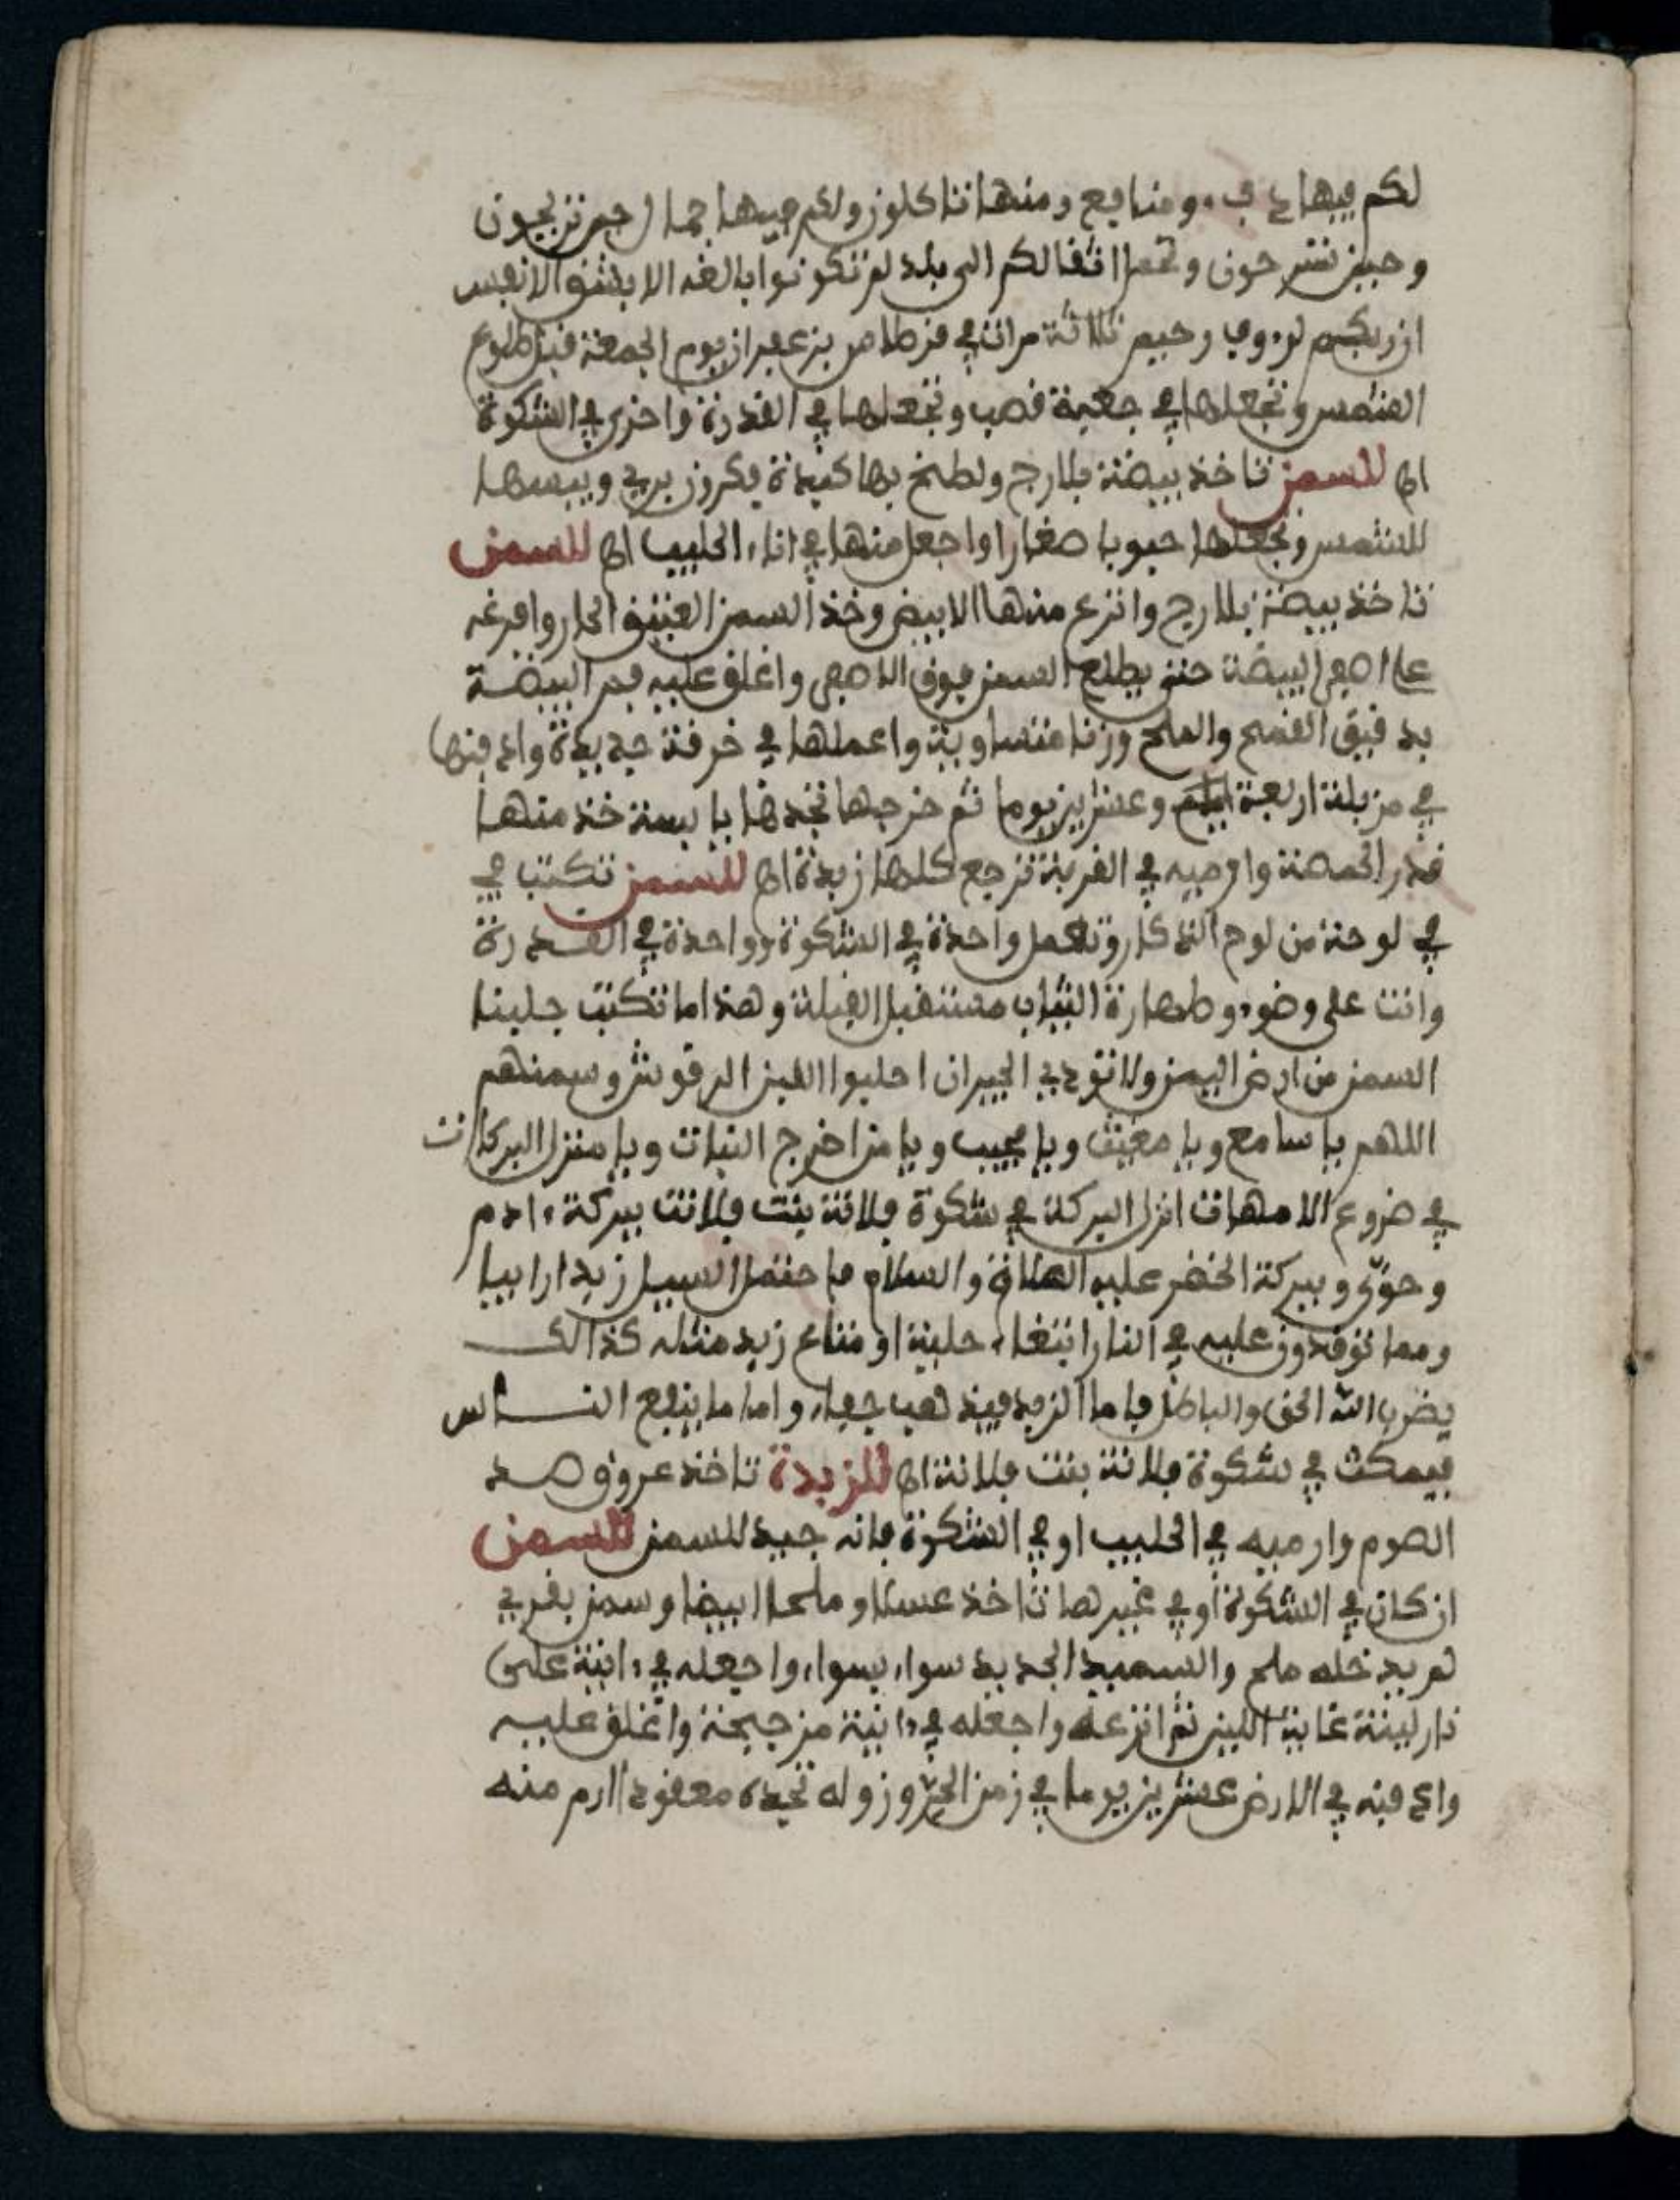 لكم فيها دفء ومنافع ومنها تاكلون ولكم فيها جمال حين تريحون
وحين تسرحون وتحمل اثقالكم الى بلد لم تكونوا بالغه الا بشق الانفس
ان ربكم لرءوف رحيم ثلاثة مرات في قرطاس بزعفران يوم الجمعة قبل طلوع
الشمس وتجعلها في جعبة قصب وتجعلها في القدرة واخرى في الشكوة
اه للسمن تاخذ بيضة بلارج وتطبخ بها كبدة بكروز بري ويبسها
للشمس وتجعلها حبوبا صغارا واجعل منها في اناء الحليب اه للسمن
تاخذ بيضة بلارج وانزع منها الابيض وخذ السمن العتيق الحار وافرغه
على اصفر البيضة حتى يطلع السمن فوق الاصفر واغلق عليه فم البيضة
بدقيق القمح والملح وزنا متساوية واعملها في خرقة جديدة وادفنها
في مزبلة اربعة ايام وعشرين يوما ثم خرجها تجدها يابسة خذ منها
قدر الحمصة وارميه في القربة ترجع كلها زبدة اه للسمن تكتب في
في لوحة من لوح الذكار وتعمل واحدة في الشكوة وواحدة في القدرة
وانت على وضوء وطهارة الثياب مستقبل القبلة وهذا ما تكتب جلبنا
السمن من ارض اليمن ولا تودي الجيران احلبوا اللبن الرقوش وسمنهم
اللهم يا سامع ويا مغيث ويا مجيب ويا من اخرج النبات ويا منزل البركات
في ضروع الامهات انزل البركة في شكوة فلانة بنت فلانت ببركة ءادم
وحوى وببركة الخضر عليه الصلاة والسلام فاحتمل السيل زبدا رابيا
ومما توقدون عليه في النار ابتغاء حلية او متاع زبد مثله كذالك
يضرب الله الحق والباطل فاما الزبد فيذهب جفاء واما ما ينفع الناس
فيمكث في شكوة فلانة بنت فلانة اه للزبدة تاخذ عروق صد
الصوم وارميه في الحليب او في الشكوة فانه جيد للسمن للسمن
ان كان في الشكوة او في غيرها تاخذ عسلا وملحا ابيضا وسمن بقري
لم يدخله ملح والسميد الجديد سواء بسواء واجعله في ءانية على
نار لينة غاية اللين ثم انزعه واجعله في ءانية من جيحة واغلق عليه
وادفنه في الارض عشرين يوما في زمن الحر وزوله تجده معقودا ارم منه